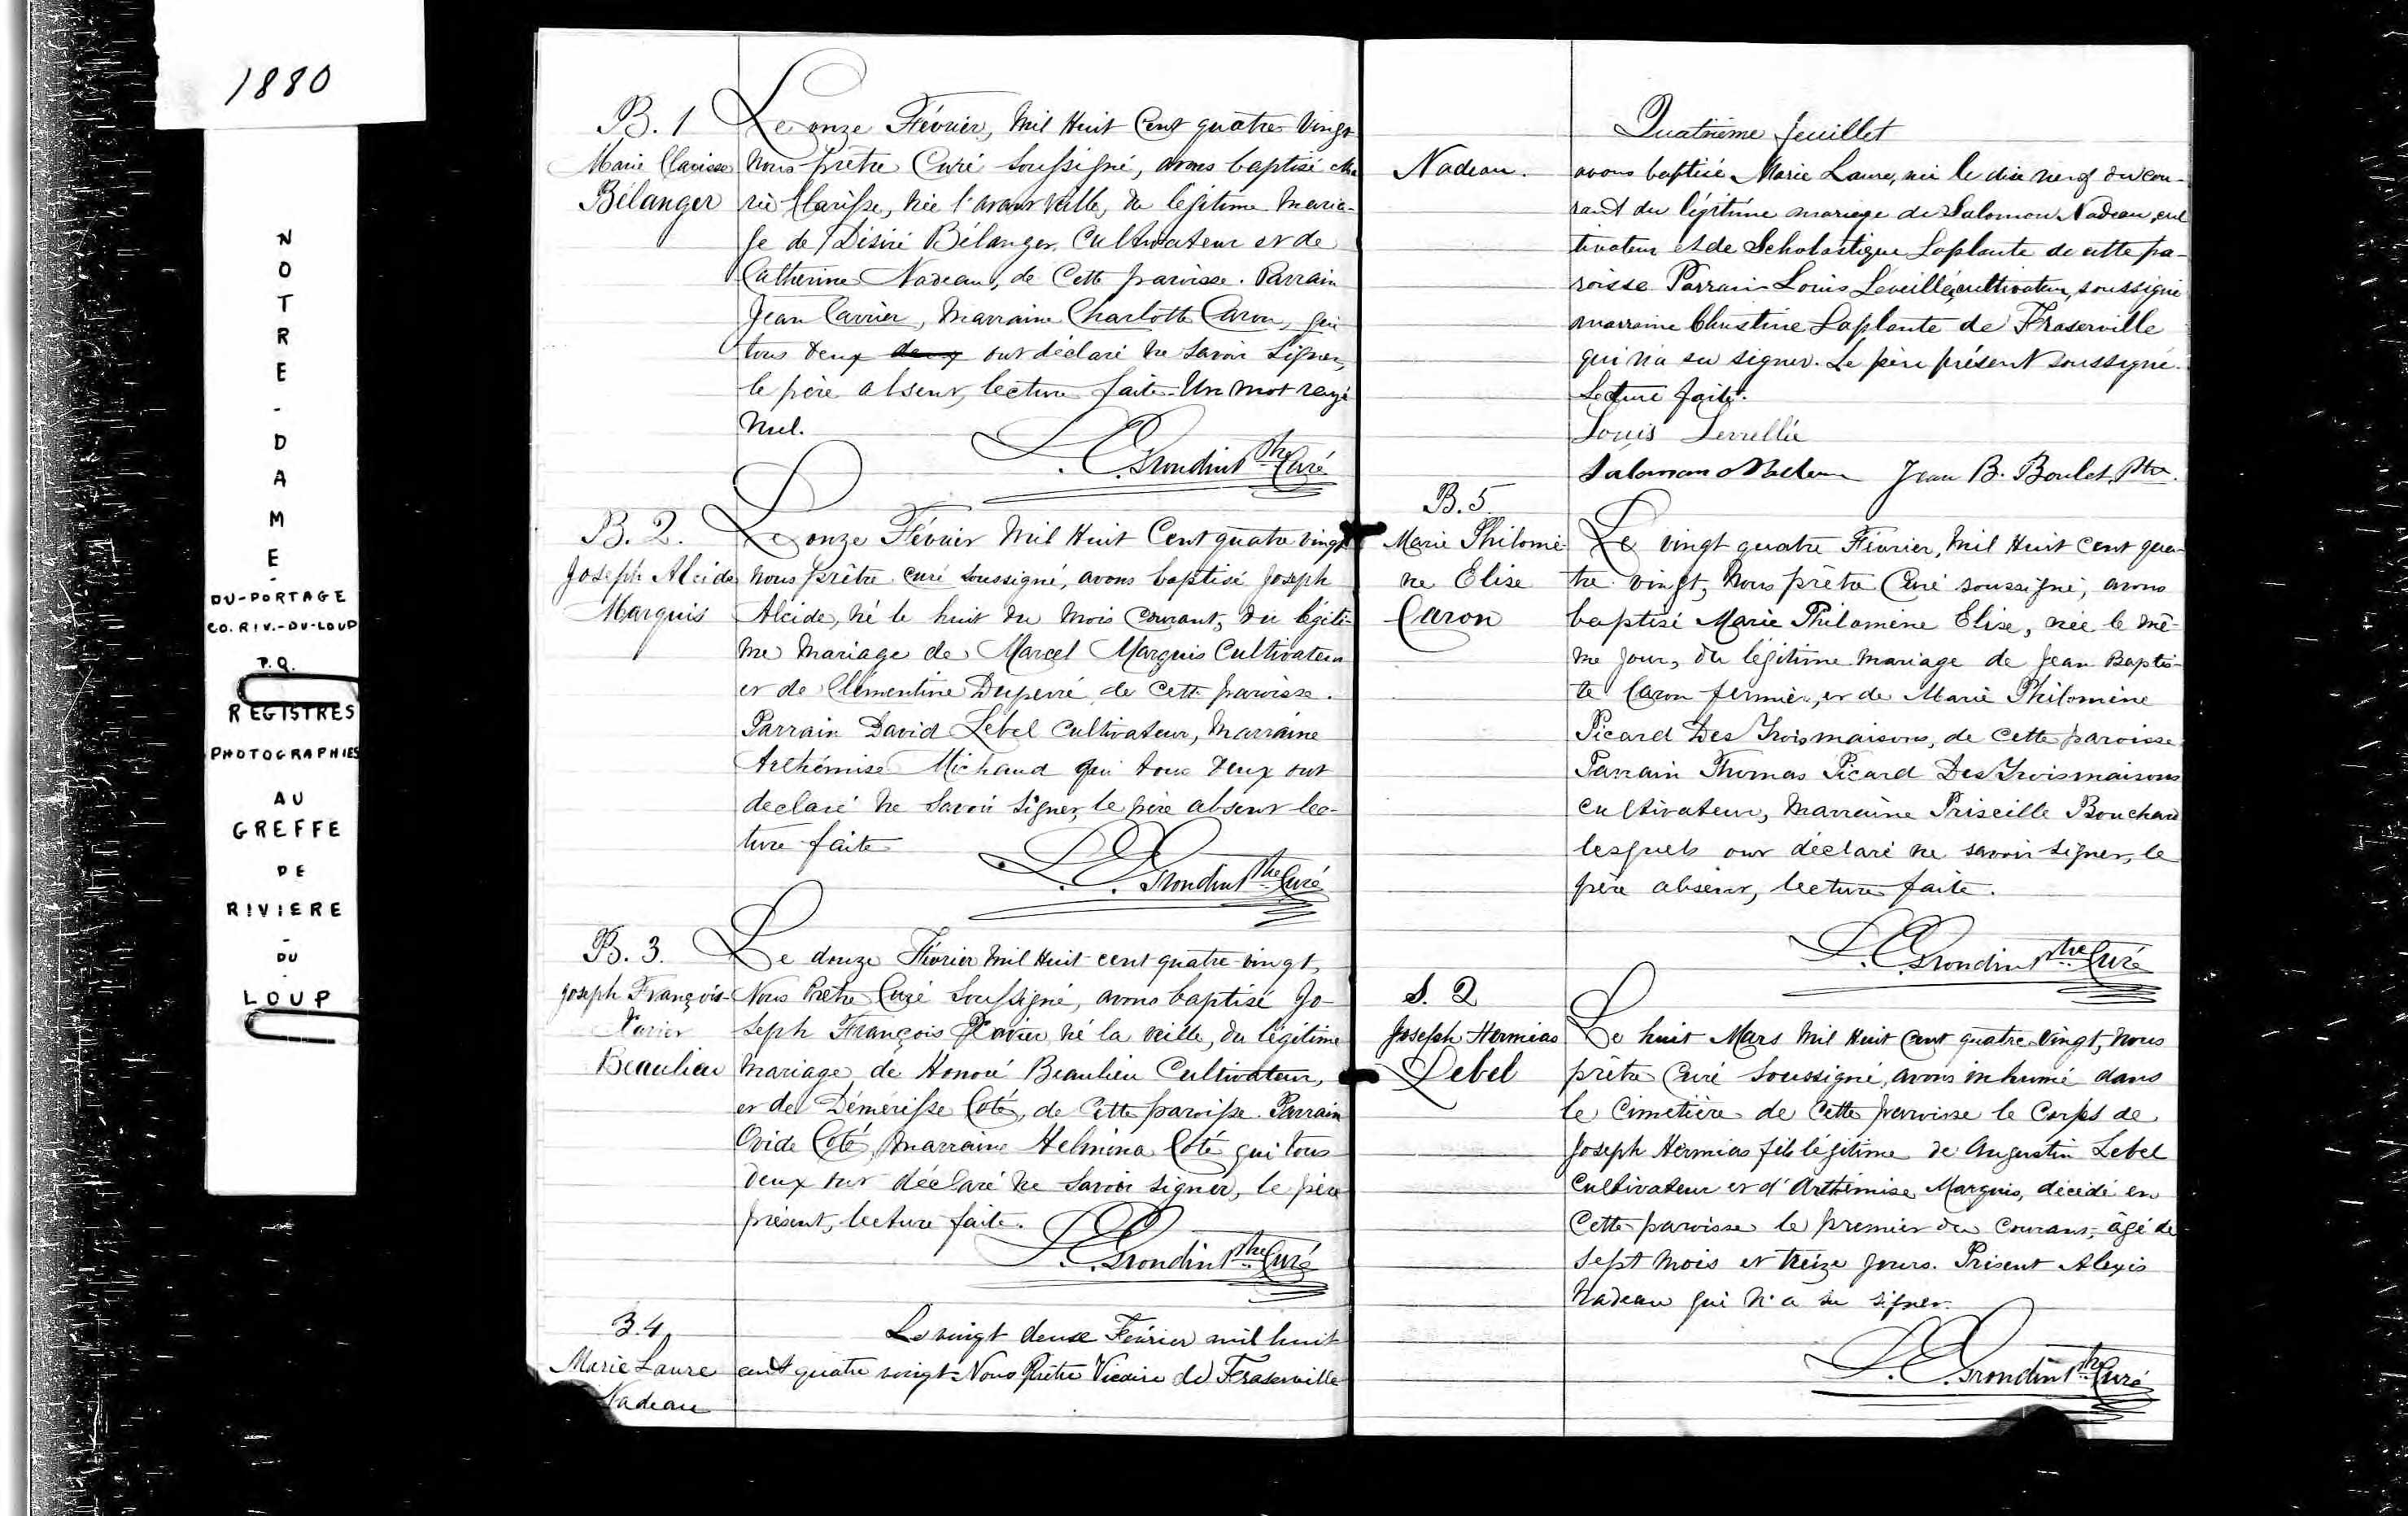 1880
NOTRE-DAME-
DU-PORTAGE
CO. RIV.-DU-LOUP
P.Q.
REGISTRES
PHOTOGRAPHIES
AU
GREFFE
DE
RIVIERE
-
DU
-
LOUP
B. 1
Marie Clarisse
Bélanger
Le onze Février, Mil Huit Cent quatre Vingt
Nous prêtre Curé soussigné, avons baptisé Ma
rie Clarisse, née l'avant veille, du légitime maria-
ge de Désiré Bélanger, Cultivateur et de
Catherine Nadeau, de Cette paroisse. Parrain
Jean Carrier, Marraine Charlotte Caron, qui
tous deux deux ont déclaré ne savoir signer,
le père absent, lecture faite. Un mot rayé
nul.
L. C. Grondin Ptre Curé
B. 2.
Joseph Alcide
Marquis
Le onze Février Mil Huit Cent quatre vingt
Nous prêtre curé soussigné, avons baptisé Joseph
Alcide, né le huit du mois courant, du légiti-
me mariage de Marcel Marquis Cultivateur
et de Clémentine Duperré de cette paroisse.
Parrain David Lebel Cultivateur, Marraine
Arthémise Michaud qui tous deux ont
declaré ne savoir signer, le père absent lec-
ture faite
L. C. Grondin Ptre Curé
B. 3.
Joseph François-
Xavier
Beaulieu
Le douze Février Mil Huit cent quatre-vingt,
Nous Prêtre Curé Soussigné, avons baptisé Jo-
seph François Xavier né la veille, du légitime
Mariage de Honoré Beaulieu Cultivateur,
et de Démérisse Coté, de Cette paroisse. Parrain
Ovide Coté, Marraine Helmina Coté qui tous
deux ont déclaré ne savoir signer, le père
présent, lecture faite.
L. C. Grondin Ptre Curé
B. 4
Marie Laure
Nadeau
Le vingt deux Février mil huit
cent quatre vingt Nous Prêtre Vicaire de Fraserville
Quatrième feuillet
Nadeau.
avons baptisé Marie Laure, née le dix neuf du cou-
rant du légitime mariage de Salomon Nadeau, cul
tivateur et de Scholastique Laplante de cette pa-
roisse Parrain Louis Leveillé, cultivateur, soussigné
marraine Christine Laplante de Fraserville
qui n'a su signer. Le père présent soussigné.
Lecture faite.
Louis Levellie
Salomon Nadeau Jean B. Boulet, Ptre.
B. 5.
Marie Philomè-
ne Elise
Caron
Le vingt quatre Février, Mil Huit cent qua-
tre vingt, Nous prêtre Curé soussigné, avons
baptisé Marie Philomène Elise, née le mê-
me jour, du légitime mariage de Jean Baptis-
te Caron fermier, et de Marie Philomène
Picard Des Troismaisons, de cette paroisse
Parrain Thomas Picard Des Troismaisons
Cultivateur, Marraine Priscille Bouchard
lesquels ont déclaré ne savoir signer, le
père absent, lecture faite.
L. C. Grondin Ptre Curé
S. 2
Joseph Hermias
Lebel
Le huit Mars Mil Huit Cent quatre-vingt, nous
prêtre Curé Soussigné, avons inhumé dans
le Cimetière de Cette paroisse le Corps de
Joseph Hermias fils légitime de Augustin Lebel
Cultivateur et d'Arthémise Marquis, décédé en
Cette paroisse le premier du Courant, âgé de
sept mois et treize jours. Présent Alexis
Nadeau qui n'a su signer.
L. C. Grondin Ptre Curé